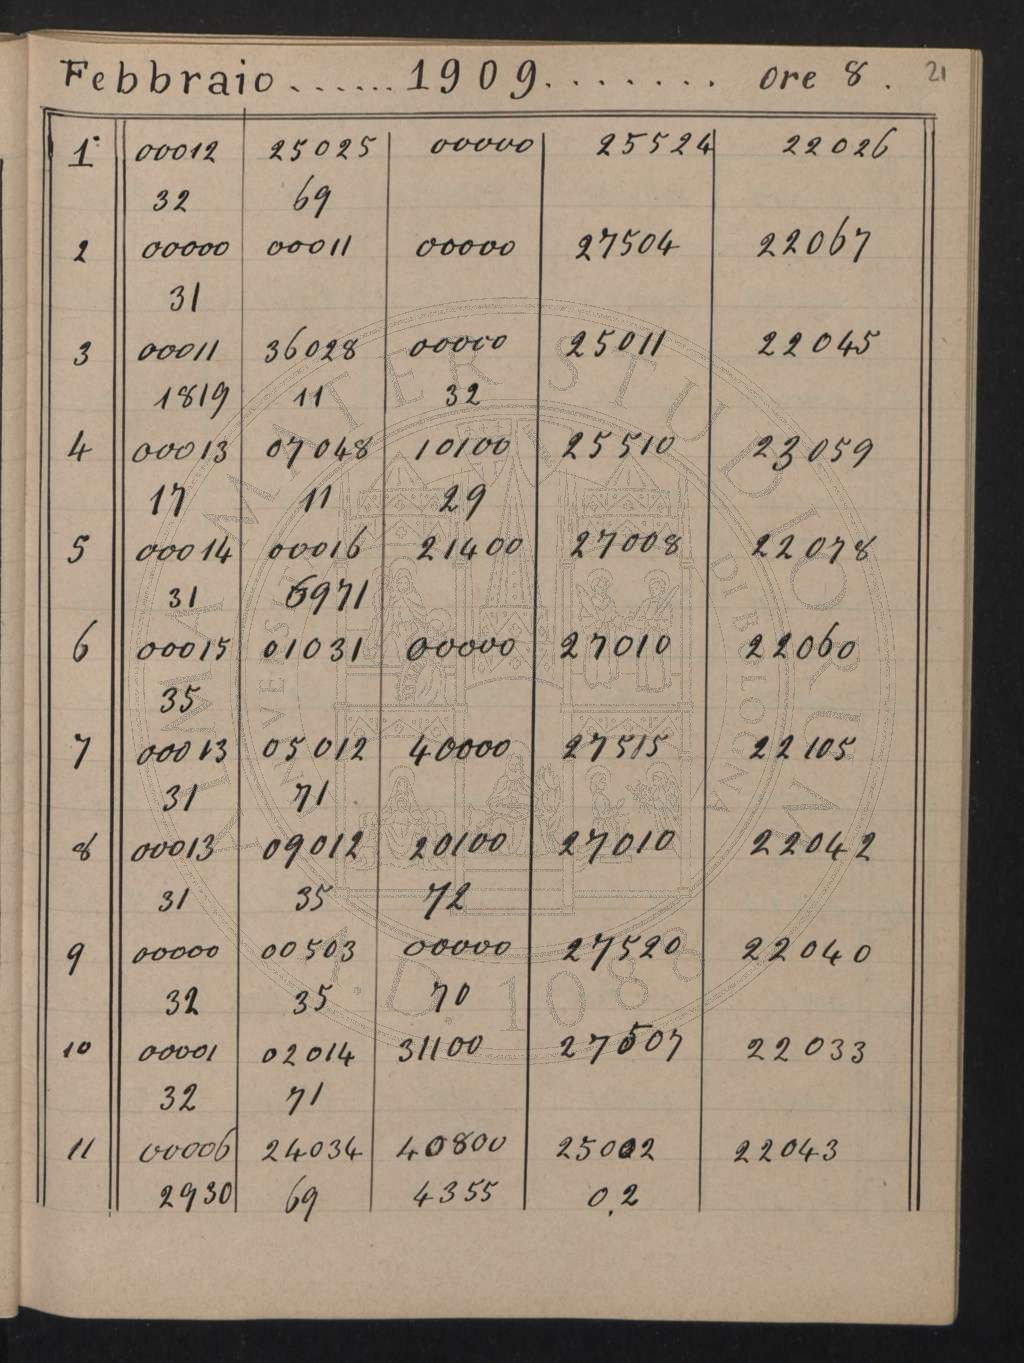 Febbraio ...... 1909 ....... ore 8 . 21
1° 00012 25025 00000 25524 22026
32 69
2 00000 00011 00000 27504 22067
31
3 00011 36028 00000 25011 22045
1819 11 32
4 00013 07048 10100 25510 23059
17 11 29
5 00014 00016 21400 27008 22078
31 6971
6 00015 01031 00000 27010 22060
35
7 00013 05012 40000 27515 22105
31 71
8 00013 09012 20100 27010 22042
31 35 72
9 00000 00503 00000 27520 22040
32 35 70
10 00001 02014 31100 27507 22033
32 71
11 00006 24034 40800 25002 22043
2930 69 4355 0.2
ALMA MATER STUDIORUM
A.D. 1088